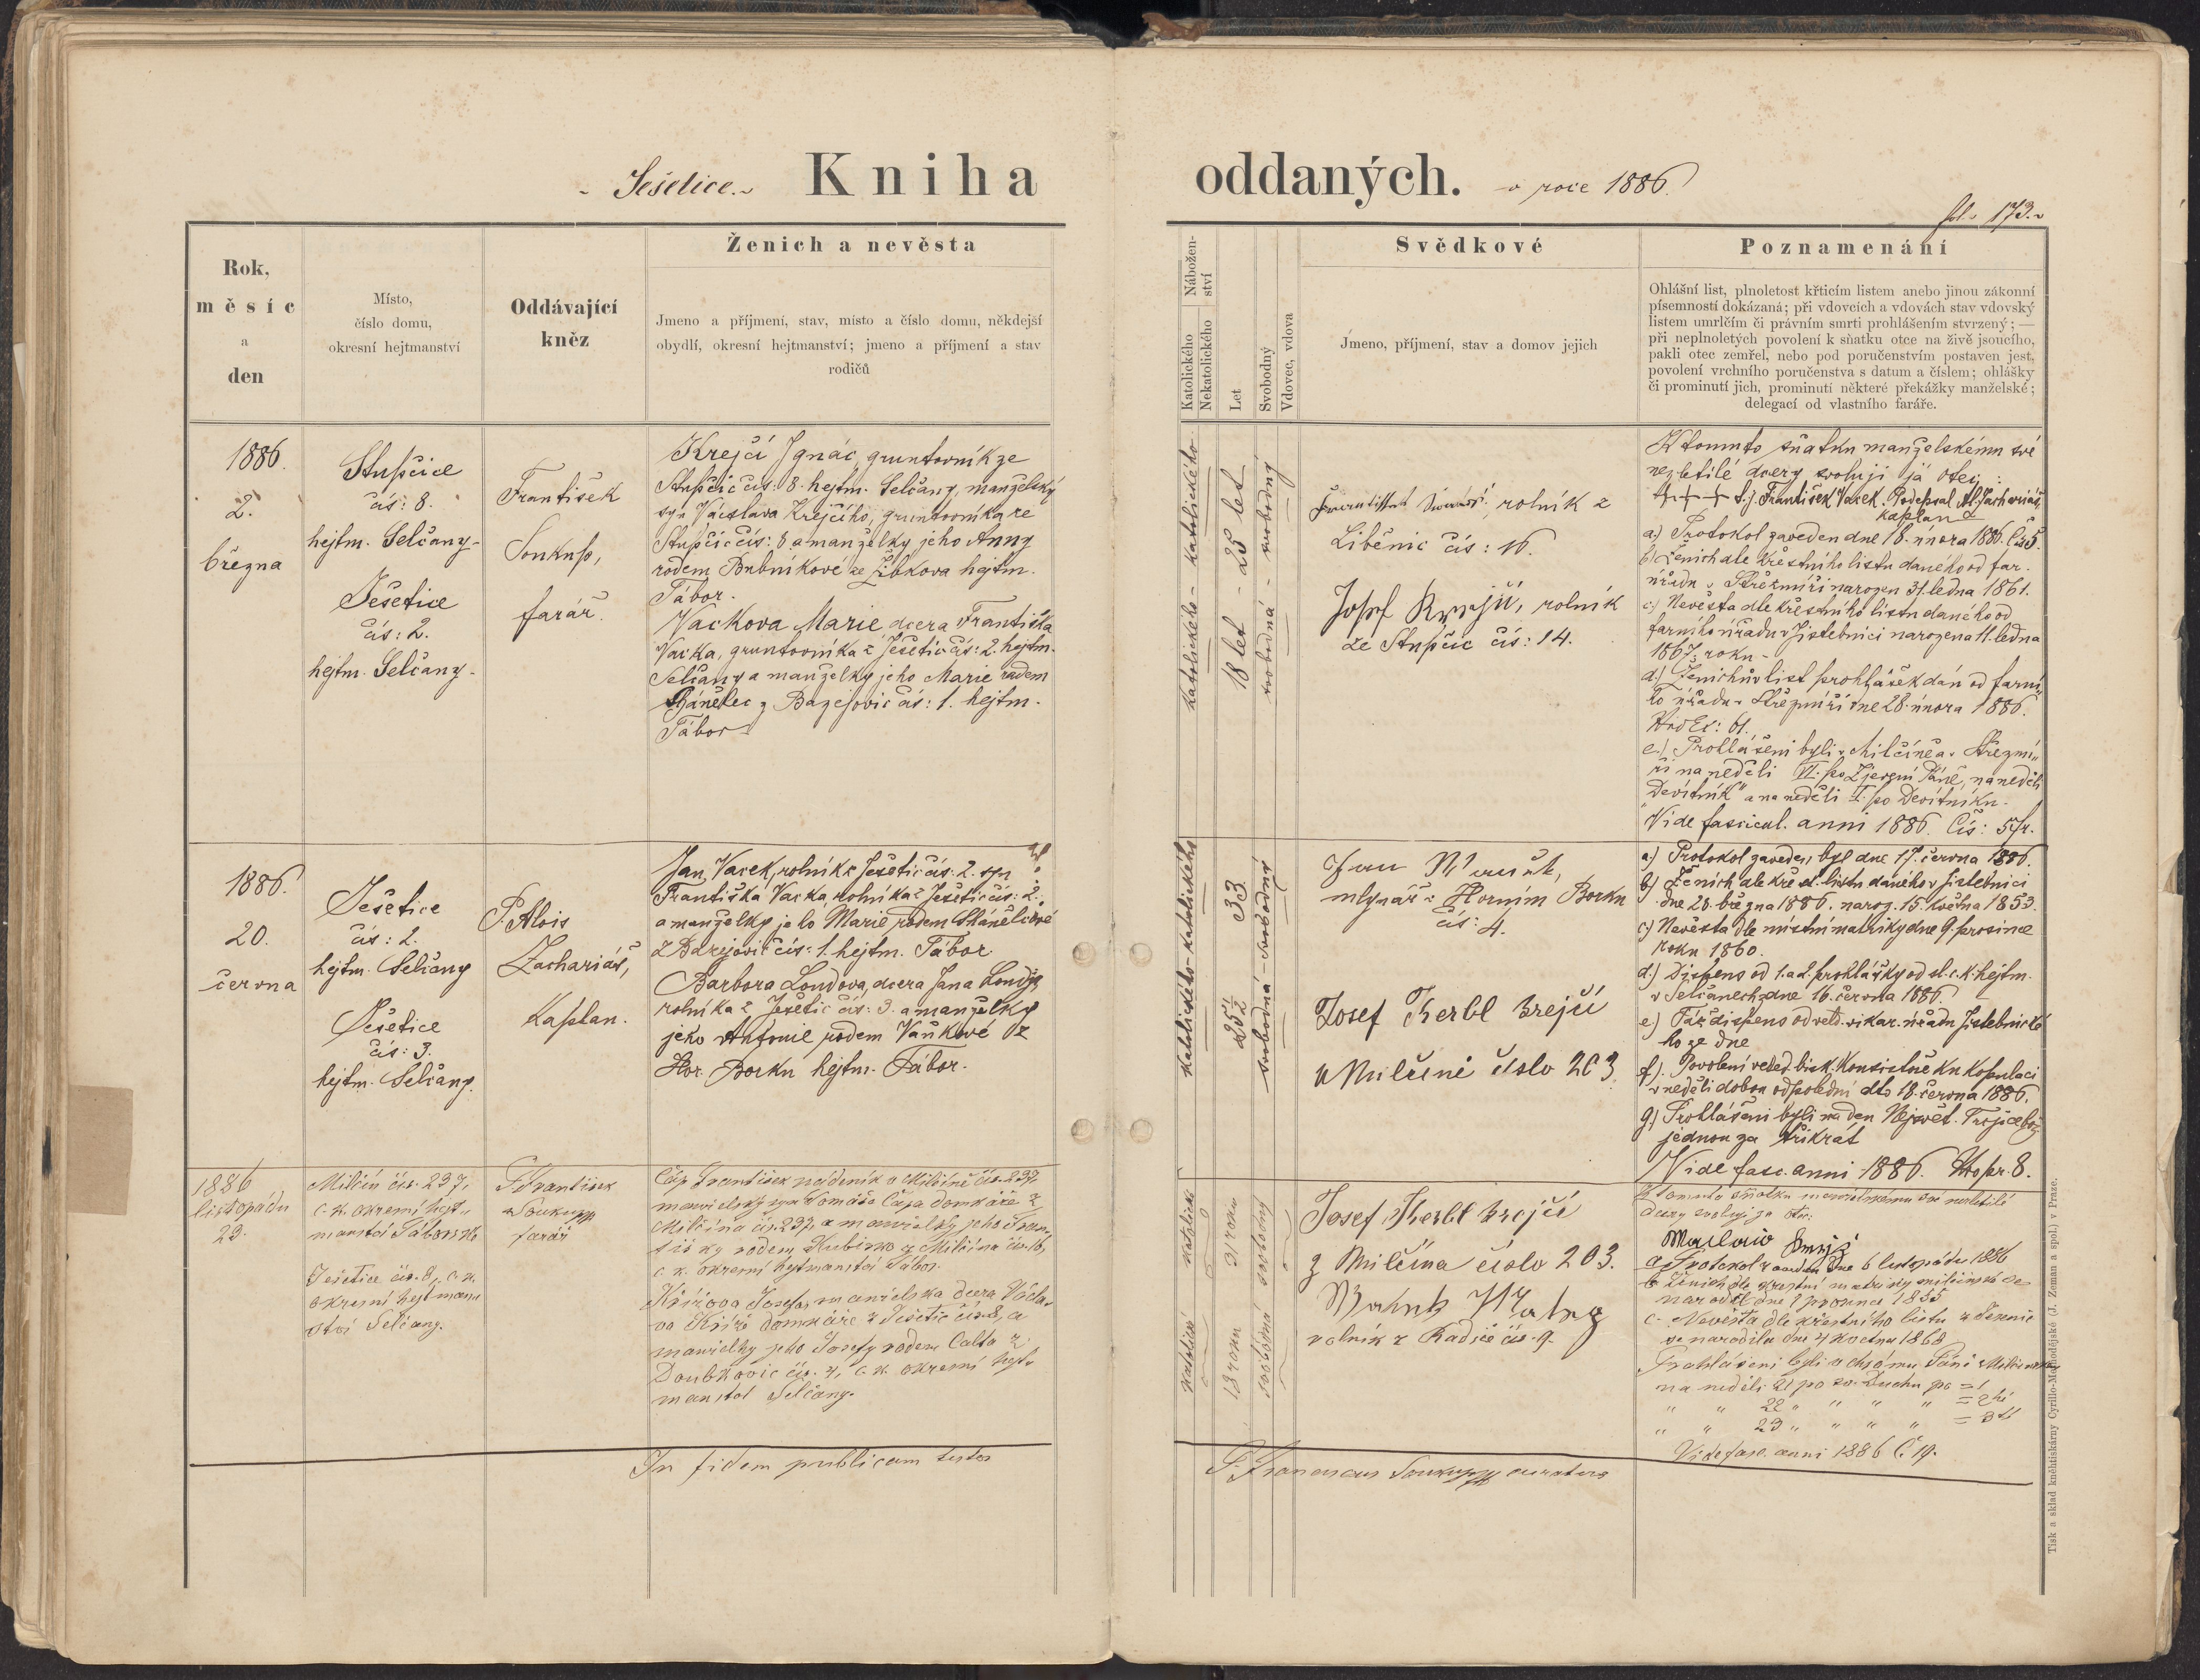 Ješetice. Kniha oddaných. v roce 1886.
fol. 173.
Rok,
měsíc
a
den
Místo,
číslo domu,
okresní hejtmanství
Oddávající
kněz
Ženich a nevěsta
Jmeno a příjmení, stav, místo a číslo domu, někdejší
obydlí, okresní hejtmanství; jmeno a příjmení a stav
rodičů
Nábožen-
ství
Katolického
Nekatolického
Let
Svobodný
Vdovec, vdova
Svědkové
Jmeno, příjmení, stav a domov jejich
Poznamenání
Ohlášní list, plnoletost křticím listem anebo jinou zákonní
písemností dokázaná; při vdovcích a vdovách stav vdovský
listem umrlčím či právním smrti prohlášením stvrzený; —
při neplnoletých povolení k sňatku otce na živě jsoucího,
pakli otec zemřel, nebo pod poručenstvím postaven jest,
povolení vrchního poručenstva s datum a číslem; ohlášky
či prominutí jich, prominutí některé překážky manželské;
delegací od vlastního faráře.
1886.
2.
března
Stupčice
čís: 8.
hejtm. Selčany-
Ješetice
čís: 2.
hejtm. Selčany-
František
Soukup,
farář.
Krejčí Ignác, gruntovník ze
Stupčic čís: 8. hejtm. Selčany, manželský
syn Václava Krejčího, gruntovníka ze
Stupčic čís: 8 a manželky jeho Anny
rodem Bubníkové ze hejtm.
Tábor.
Vackova Marie dcera Františka
Vacka, gruntovníka z Ješetic čís: 2. hejtm.
Selčany a manželky jeho Marie rodem
z čís: 1. hejtm.
Tábor
katolického - katolického
18 let - 25 let
svobodná - svobodný
rolník z
Liběnic čís: 16.
Josef Krejčí, rolník
ze Stupčic čís: 14.
K tomuto sňatku manželskému své
nezletilé dcery svoluji já otec:
+++ František Vacek. Podepsal Al. Zachariáš,
kaplan
a) Protokol zaveden dne 18. února 1886. Čís 5.
b) Ženich dle křestního listu daného od far.
úřadu v Střezmíři narozen 31. ledna 1861.
c.) Nevěsta dle křestního listu daného od
farního úřadu v Jistebnici narozena 11. ledna
1867 roku -
d.) Ženichův list prohlášek dán od farní-
ho úřadu v Střezmíři dne 28. února 1886.
e.) Prohlášeni byli v Milčíně a v Střezmí-
ři na neděli VI. po Zjevení Páně, na neděli
„Devítník" a na neděli I. po Devítníku-
Vide fascicul. anni 1886. Čís: 5
1886.
20.
června
Ješetice
čís: 2.
hejtm. Selčany
Ješetice
čís: 3.
hejtm. Selčany.
P. Alois
Zachariáš,
Kaplan.
Jan Vacek, rolník z Ješetic čís: 2. syn
Františka Vacka, rolníka z Ješetic čís: 2.
a manželky jeho Marie rodem
z čís: 1. hejtm. Tábor.
Barbora Londova, dcera Jana Londy,
rolníka z Ješetic čís: 3. a manželky
jeho Antonie rodem Vaňkové z
Hor. Borku hejtm. Tábor.
Katolického - katolického
25½ 33
svobodná - svobodný
Jan
mlynář v Horním Borku
čís: 4.
Josef Kerbl Krejčí
v Milčíně číslo 203.
a) Protokol zaveden byl dne 17. června 1886.
b) Ženich dle křest. listu daného v Jistebnici
dne 28. března 1886. naroz. 15. května 1853.
c) Nevěsta dle místní matriky dne 9. prosince
roku 1860.
d.) Dispens od 1. a 2. prohlášky od sl. c.k. hejtm.
v Selčanech dne 16. června 1886.
e) Též dispens od veld. vikar. úřadu Jistebnické
ho ze dne
f). Povolení veled. bisk. Konsistoře ku kopulaci
v neděli dobou odpolední dto 18. června 1886.
g) Prohlášeni byli na den Nejsvět. Trojice
jednou za třikrát
Vide fasc. anni 1886. 8.
1886
listopadu
23.
Milčín čís. 237,
c. k. okresní hejt-
manství Táborské
Ješetice čís. 8, c. k.
okresní hejtman-
ství Selčany.
P. František
Soukup
farář
Čáp František nádeník v Milčíně čís. 237,
manželský syn Tomáše Čápa domkáře z
Milčína čís. 237, a manželky jeho Fran-
tišky rodem z Milčína čís. 16,
c. k. okresní hejtmanství Tábor.
Křížova Josefa, manželská dcera Václa-
va Kříže domkáře z Ješetic čís. 8, a
manželky jeho Josefy rodem Calta z
Doubkovic čís. 4, c. k. okresní hejt-
manství Selčany.
katolické katolické
18 roku 31 roku
svobodná svobodný
Josef Kerbl Krejčí
z Milčína číslo 203.
rolník z Radíče čís. 9.
K tomuto sňatku manželskému své nezletilé
dcery svoluji já otec:
a. Protokol zaveden dne 6 listopadu 1886
b. Ženich dle křestní matriky milčínské se
narodil dne 1 prosince 1855
c. Nevěsta dle křestního listu z
se narodila dne 4 května 1868
Prohlášeni byli v chrámu Páně
na neděli 21 po sv. Duchu po =1
" " 22 " " " " = 2hé
" " 23 " " " " = 3tí
Vide fasc. anni 1886 Č. 19.
In fidem publicam testor
P. Franciscus Soukup curatus
Tisk a sklad knihtiskárny Cyrillo-Methodějské (J. Zeman a spol.) v Praze.